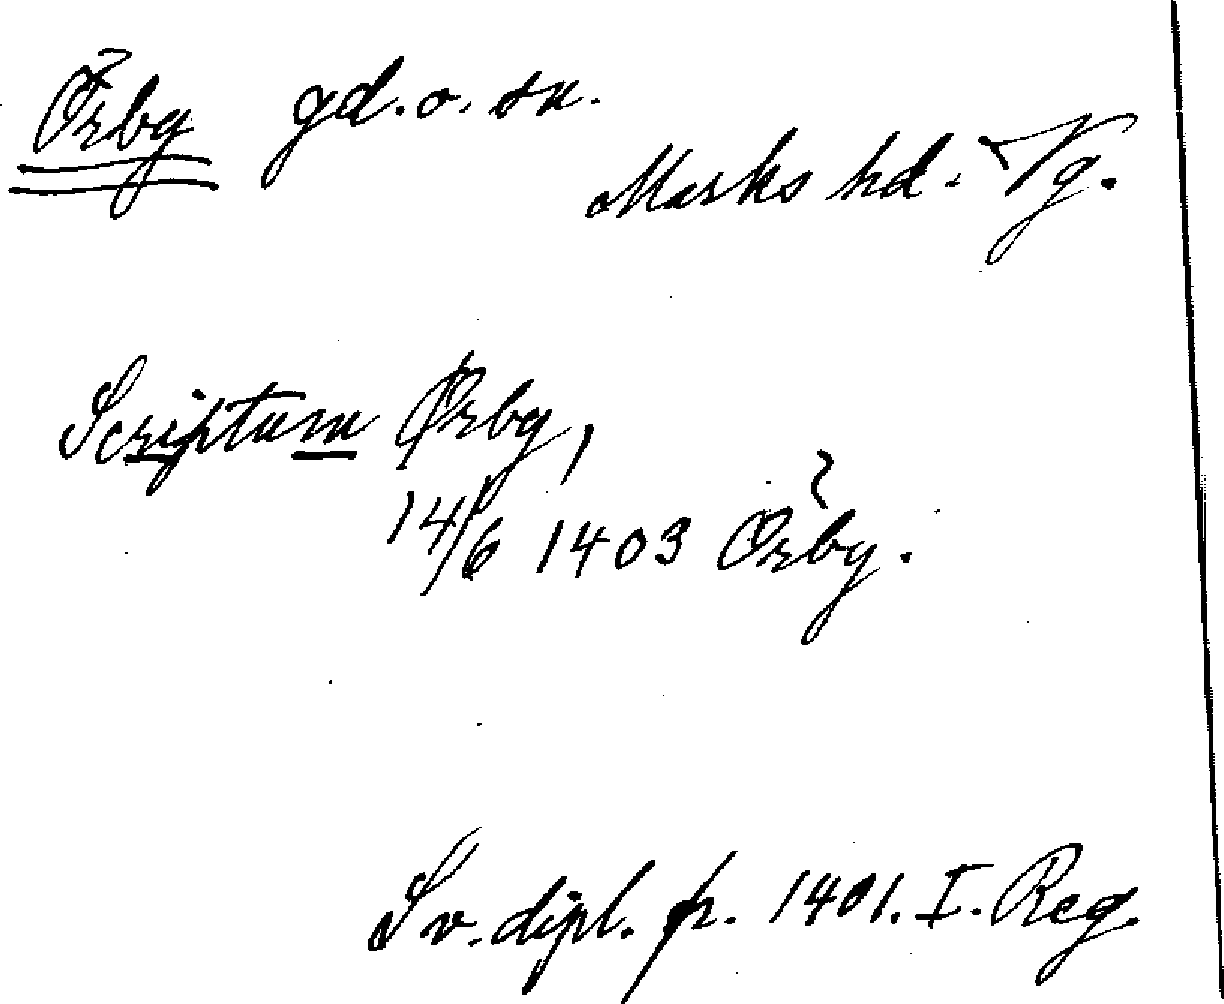 Örby gd. o. sn.
Marks hd. Vg.
Scriptum Ørby,
14/6 1403 Örby.
Sv. dipl. fr. 1401. I. Reg.